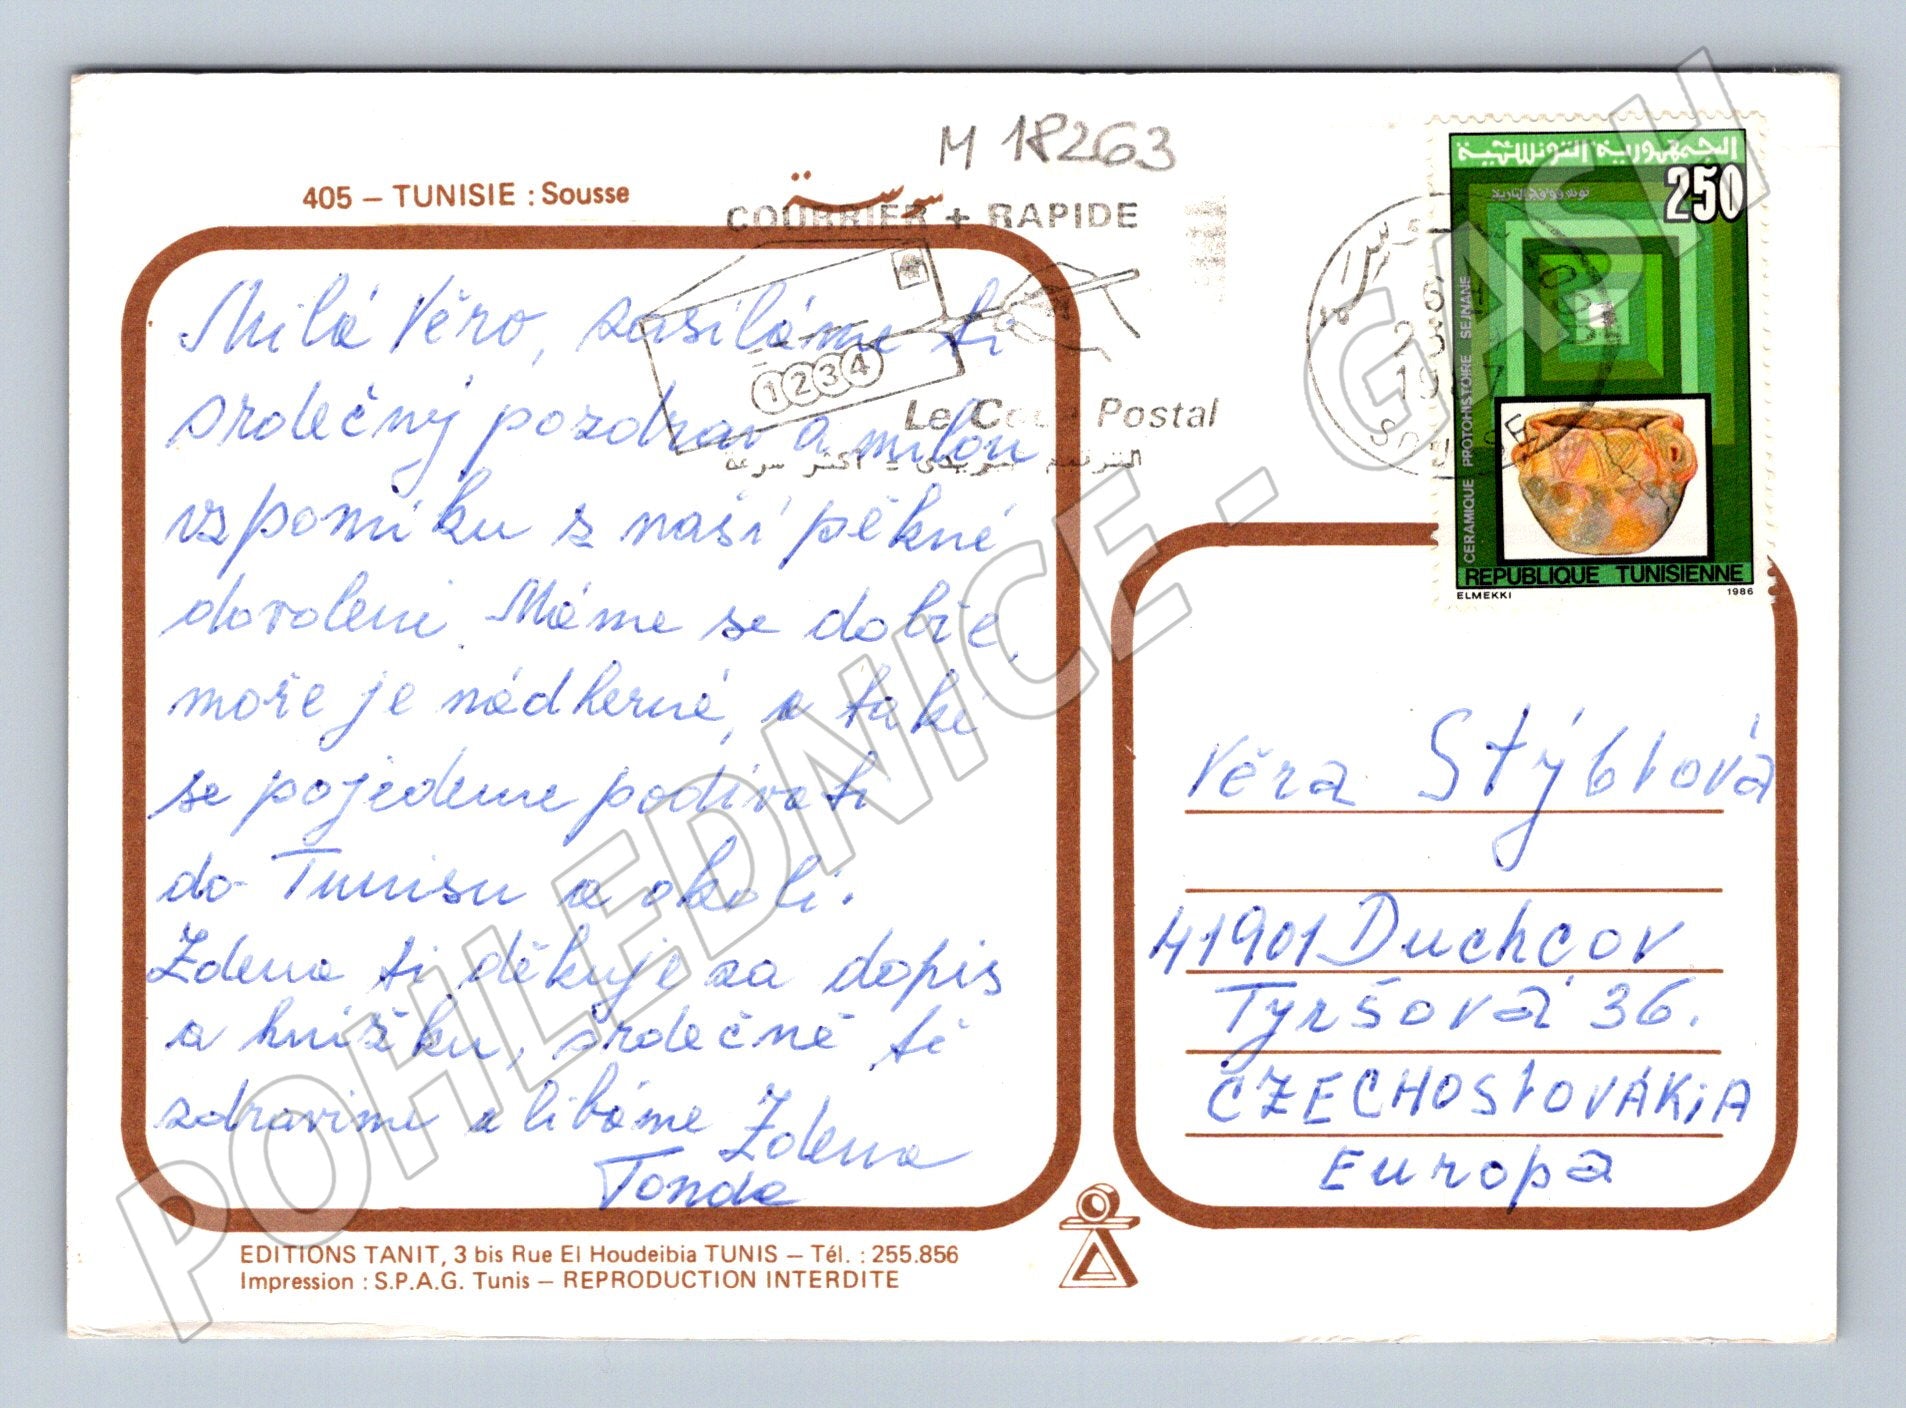 M 18263
405 – TUNISIE : Sousse
سوسة
COURRIER + RAPIDE
1234
Le Code Postal
الترقيم البريدي = أكثر سرعة
SOUSSE
الجمهورية التونسية
250
CERAMIQUE PROTOHISTOIRE SEJNANE
REPUBLIQUE TUNISIENNE
ELMEKKI 1986
Milá Věro, zasíláme ti
srdečný pozdrav a milou
vzpomíku z naší pěkné
dovolení. Máme se dobře,
moře je nádherné, a také
se pojedeme podívati
do Tunisu a okolí.
Zdena ti děkuje za dopis
a knížku, srdečně tě
zdravíme a líbáme Zdena
Tonda
Věra Stýblová
41901 Duchcov
Tyršová 36.
CZECHOSLOVÁKiA
Europa
EDITIONS TANIT, 3 bis Rue El Houdeibia TUNIS – Tél. : 255.856
Impression : S.P.A.G. Tunis – REPRODUCTION INTERDITE
POHLEDNICE - GASH